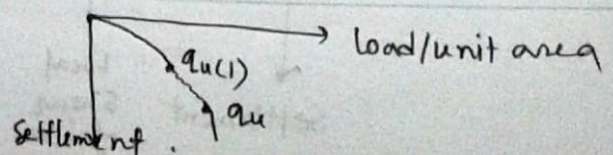 Load/unit area
qu(1)
qu
Settlement.